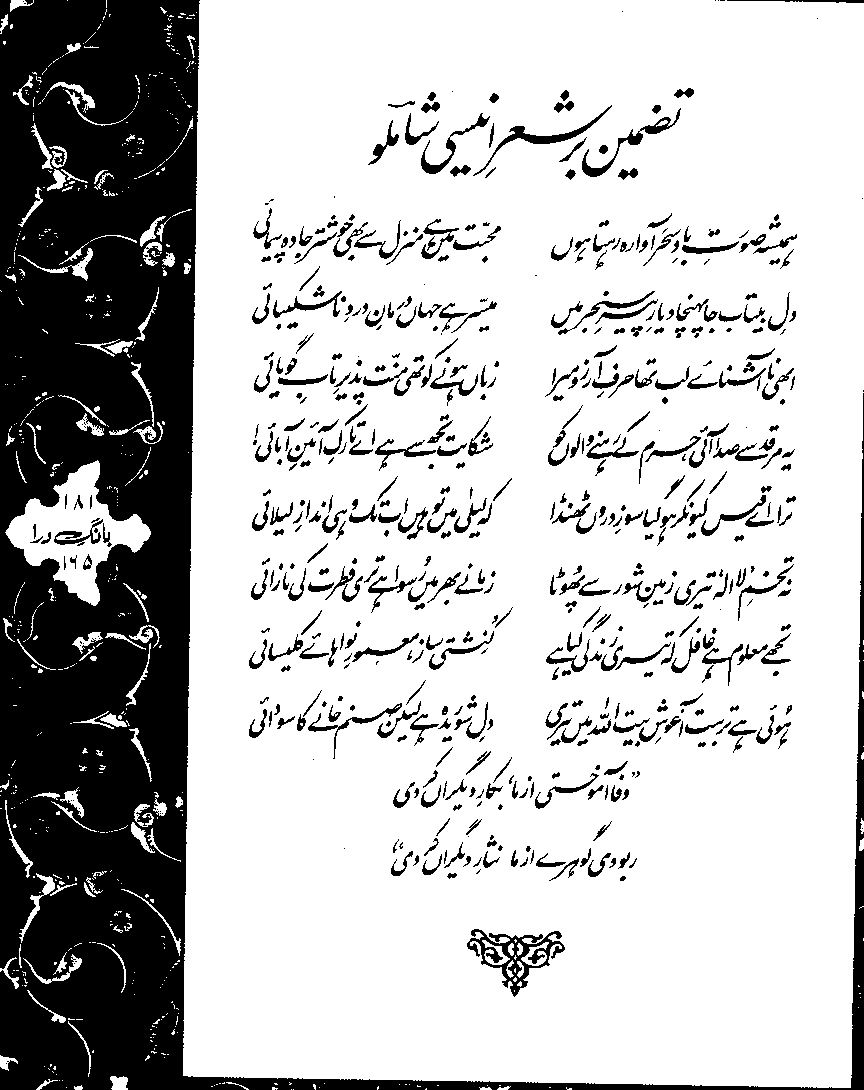 تضمین بر شعرِ انیسی شاملو
ہمیشہ صورتِ بادِ سحر آوارہ رہتا ہوں محبّت میں ہے منزل سے بھی خوشتر جادہ پیمائی
دلِ بیتاب جا پہنچا دیارِ پیرِ سنجر میں میسّر ہے جہاں درمانِ دردِ ناشکیبائی
ابھی ناآشنائے لب تھا حرفِ آرزو میرا زباں ہونے کو تھی منّت پذیرِ تابِ گویائی
یہ مرقد سے صدا آئی حرم کے رہنے والوں کو شکایت تجھ سے ہے اے تارکِ آئینِ آبائی!
ترا اے قیس کیونکر ہوگیا سوزِ دروں ٹھنڈا کہ لیلیٰ میں تو ہیں اب تک وہی اندازِ لیلائی
نہ تخمِ ’لا الٰہ‘ تیری زمینِ شور سے پھُوٹا زمانے بھر میں رُسوا ہے تری فطرت کی نازائی
تجھے معلوم ہے غافل کہ تیری زندگی کیا ہے کُنِشتی ساز، معمورِ نوا ہائے کلیسائی
ہُوئی ہے تربیت آغوشِ بیت اللہ میں تیری دلِ شوریدہ ہے لیکن صنم خانے کا سودائی
”وفا آموختی از ما، بکارِ دیگراں کر دی
ربودی گوہرے از ما نثارِ دیگراں کر دی“
۱۸۱
بانگِ درا
۱۶۵